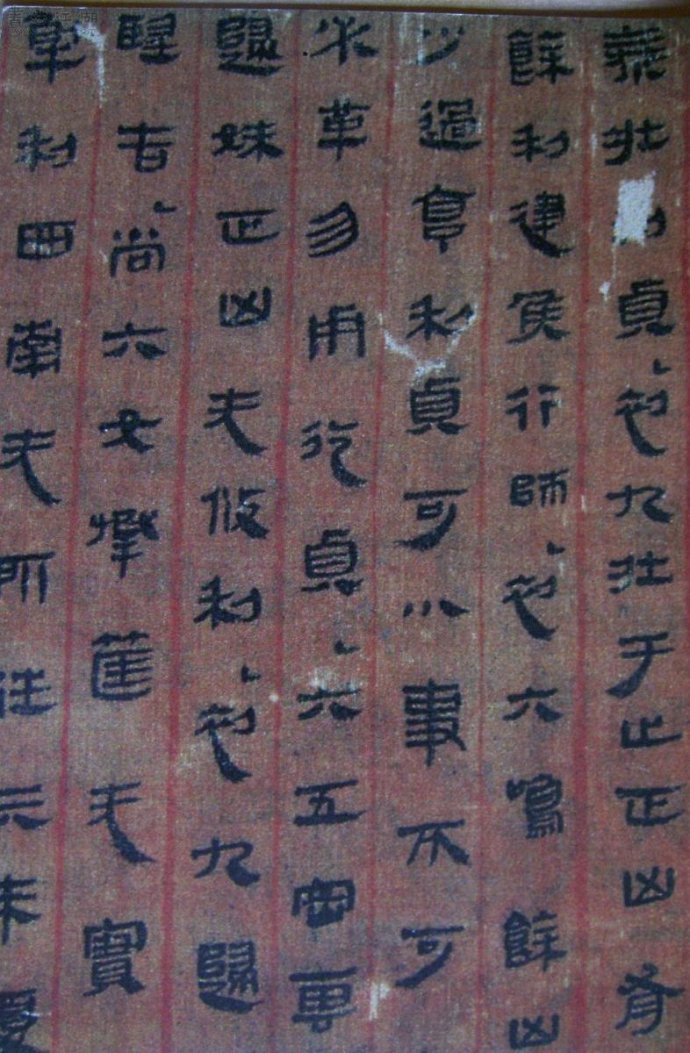 泰壯利貞、初九壯于止正凶有
餘利建侯行師、初六鳴餘凶
少過亨利貞可小事不可
必革勿用永貞、六五密雲
歸妹正凶无攸利、初九歸
望吉、尚六女承筐无實
解利西南无所往亓來復